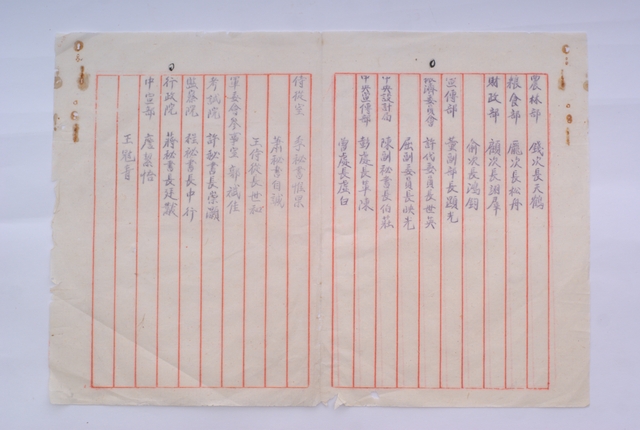 農林部 錢次長天鶴
糧食部 龐次長松舟
財政部 顧次長翊羣
俞次長鴻鈞
宣傳部 董副部長顯光
經濟委員會 許代委員長世英
屈副委員長映光
中央設計局 陳副秘書長伯莊
中央宣傳部 彭處長革陳
曾處長虛白
侍從室 李秘書惟果
蕭秘書自誠
王侍從長世和
軍委會參事室 郭斌佳
考試院 許秘書長崇灝
監察院 程秘書長中行
行政院 蔣秘書長廷黻
中宣部 詹潔悟
王冠青